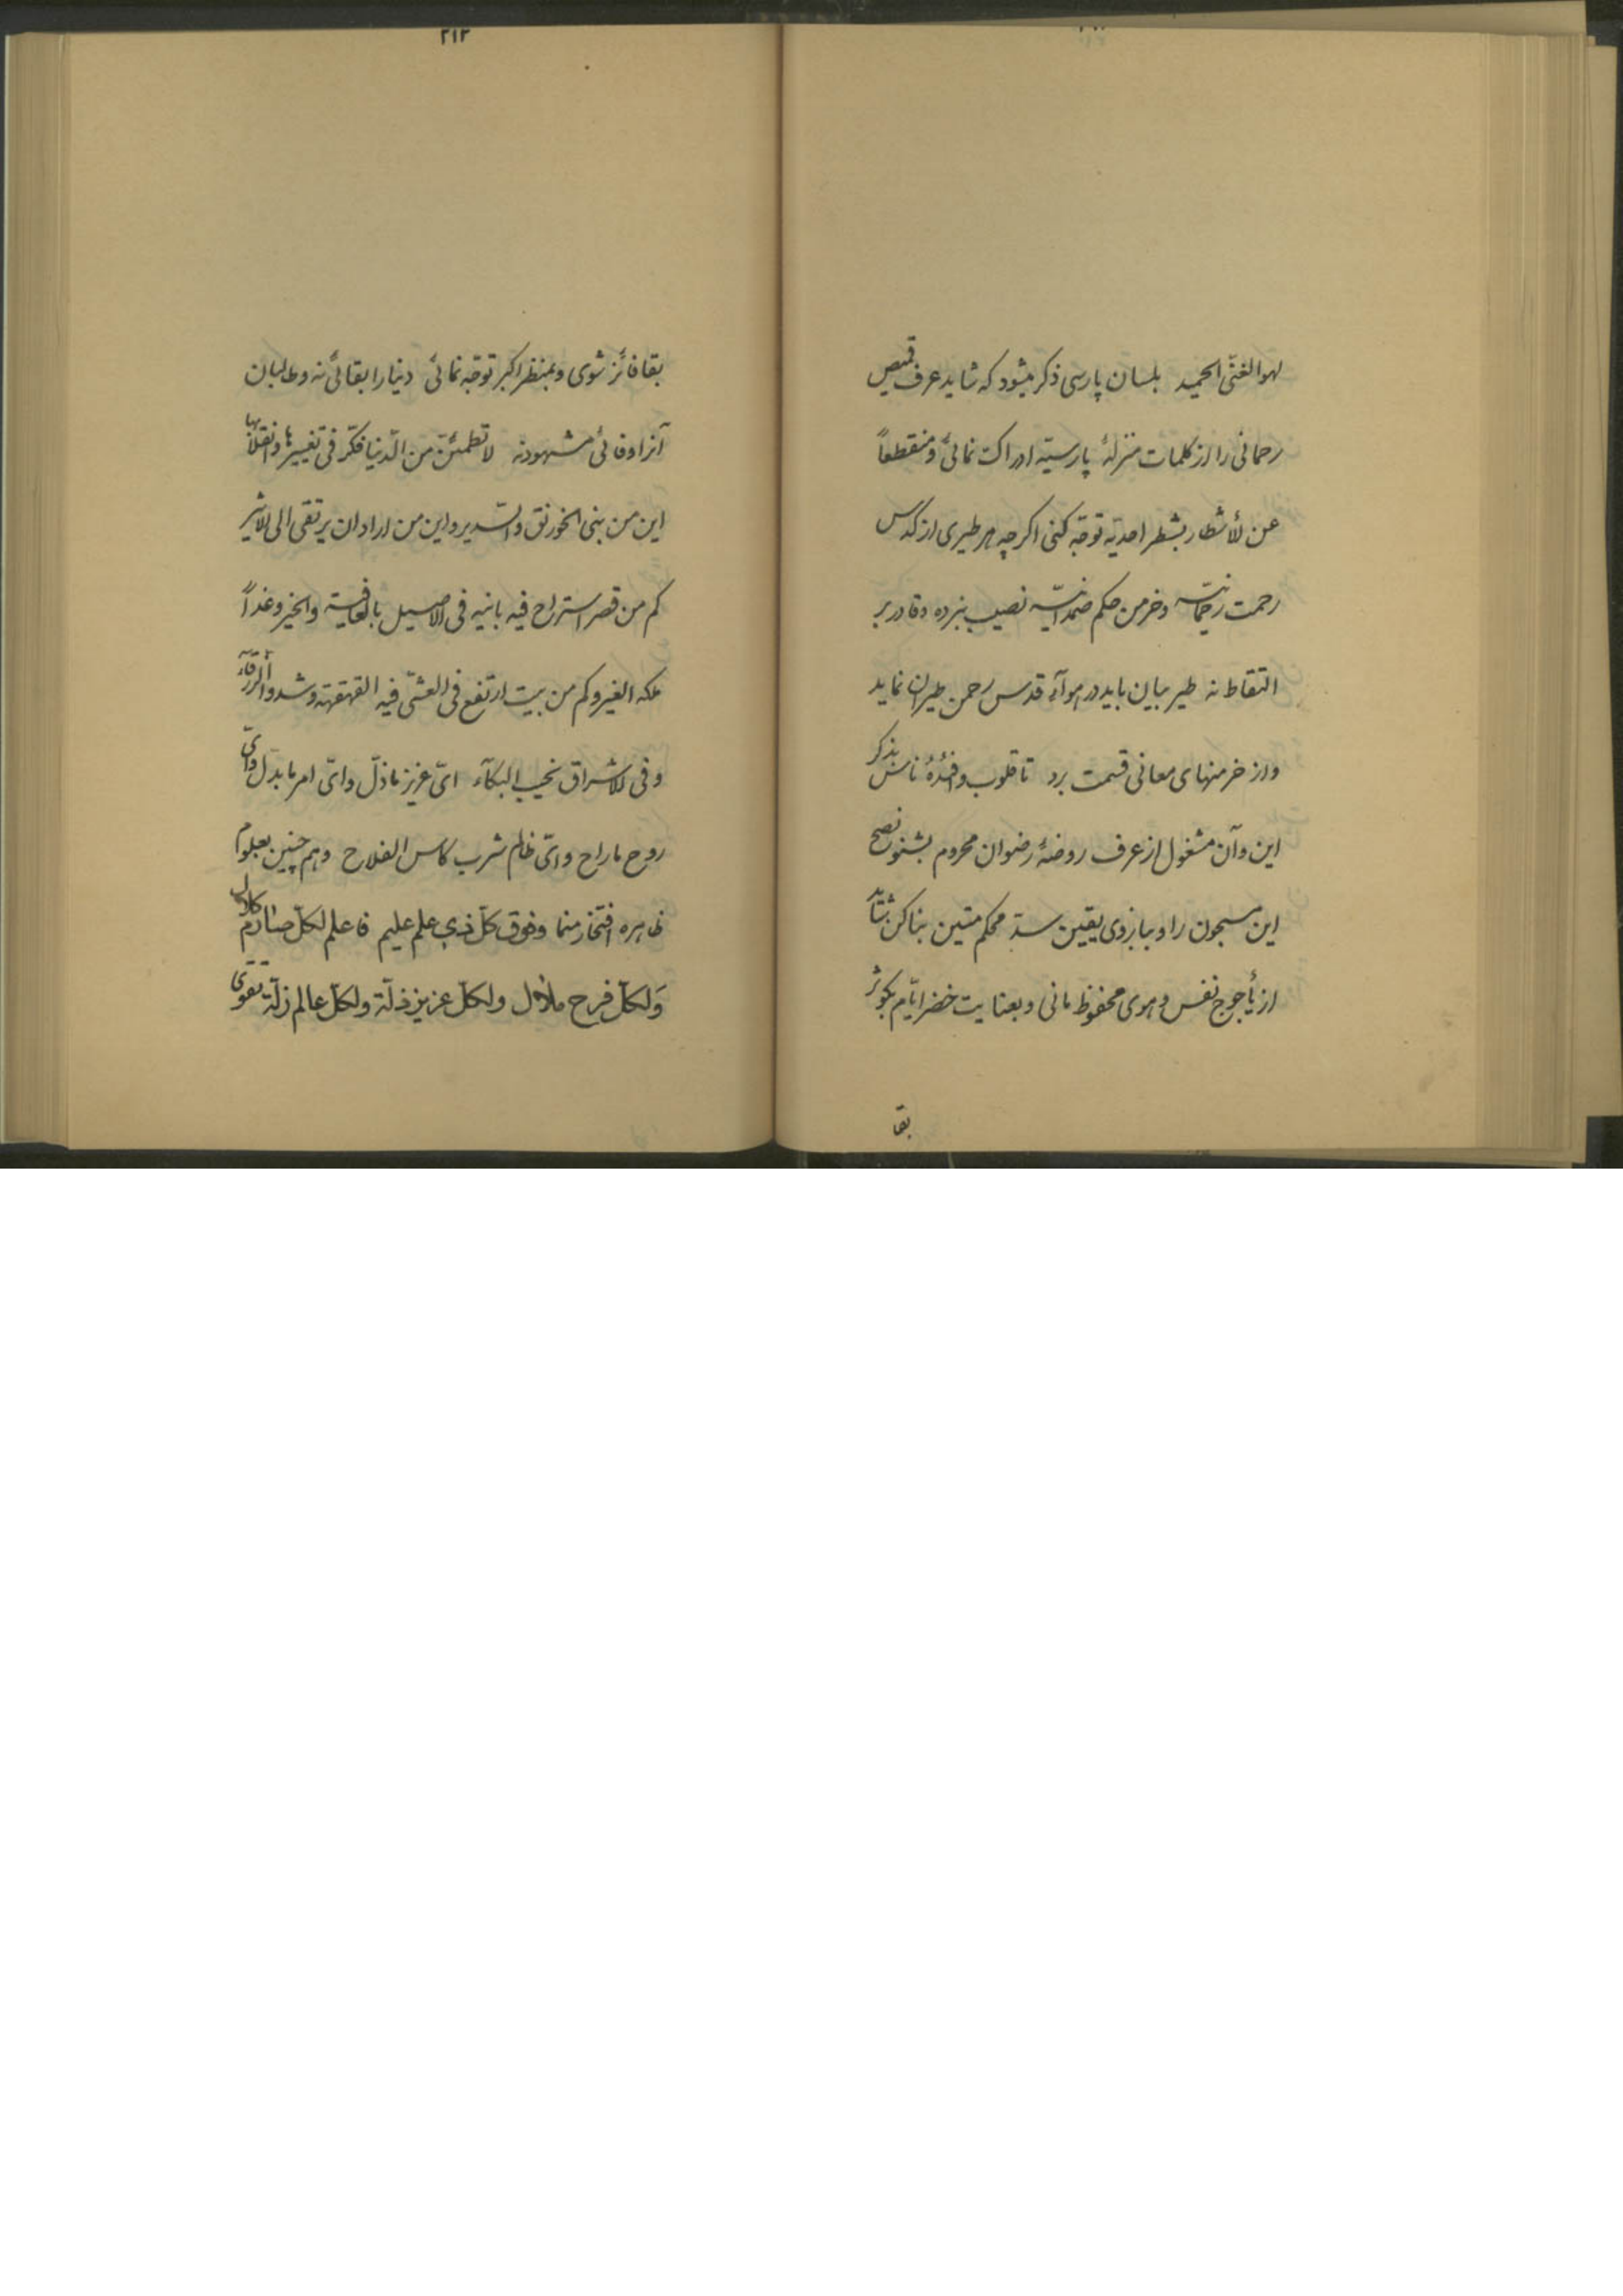 لهو الغنی الحمید بلسان پارسی ذکر میشود که شاید عرف قمیص
رحمانی را از کلمات منزلهٔ پارسیّه ادراک نمائی و منقطعاً
عن الأشطار بشطر احدیّه توجّه کنی اگرچه هر طیری از کدس
رحمت رحمانیّه و خرمن حکم صمدانیّه نصیب نبرده و قادر بر
التقاط نه طیر بیان باید در هوآء قدس رحمن طیران نماید
و از خرمنهای معانی قسمت برد تا قلوب و افئدهٔ ناس بذکر
این و آن مشغول از عرف روضهٔ رضوان محروم بشنو نصح
این مسجون را و ببازوی یقین سدّ محکم متین بنا کن شاید
از یأجوج نفس و هوی محفوظ مانی و بعنایت خضر ایّام بکوثر
بقا
٢١٢
بقا فائز شوی و بمنظر اکبر توجّه نمائی دنیا را بقائی نه و طالبان
آنرا وفائی مشهود نه لا تطمئنّ من الدّنیا فکّر فی تغییرها و انقلابها
این من بنی الخورنق و السّدیر و این من اراد ان یرتقی الی الاثیر
کم من قصر استراح فیه بانیه فی الاصیل بالعافیة و الخیر و غداً
ملکه الغیر و کم من بیت ارتفع فی العشیّ فیه القهقهة و شدو الزرقآء
و فی الاشراق نحیب البکآء ایّ عزیز ما ذلّ و ایّ امر ما بدّل و ایّ
روح ما راح و ایّ ظالم شرب کاس الفلاح و هم چنین بعلوم
ظاهره افتخار منما و فوق کلّ ذی علم علیم فاعلم لکلّ صارم کلال
وَلکلّ فرح ملال ولکلّ عزیز ذلّة ولکلّ عالم زلّة تقوی